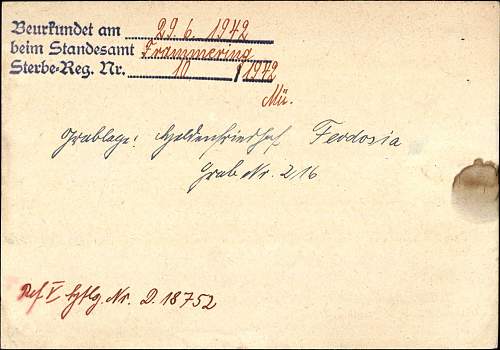 Beurkundet am 29. 6. 1942
beim Standesamt Frammering
Sterbe-Reg. Nr. 10 / 1942
Mü.
Grablage: Heldenfriedhof Feodosia
Grab Nr. 216
Ref V Nr. D. 18752